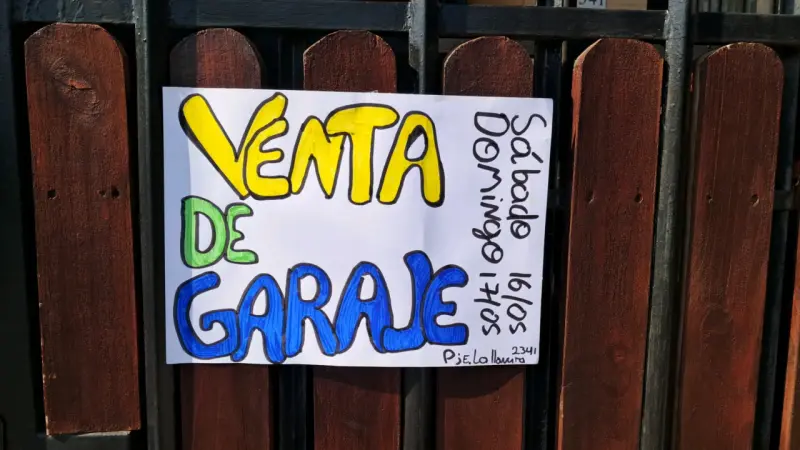 VENTA
DE
GARAJE
Sábado 16/05
DOMiNgo 17/05
PjE. La llavera 2341
341